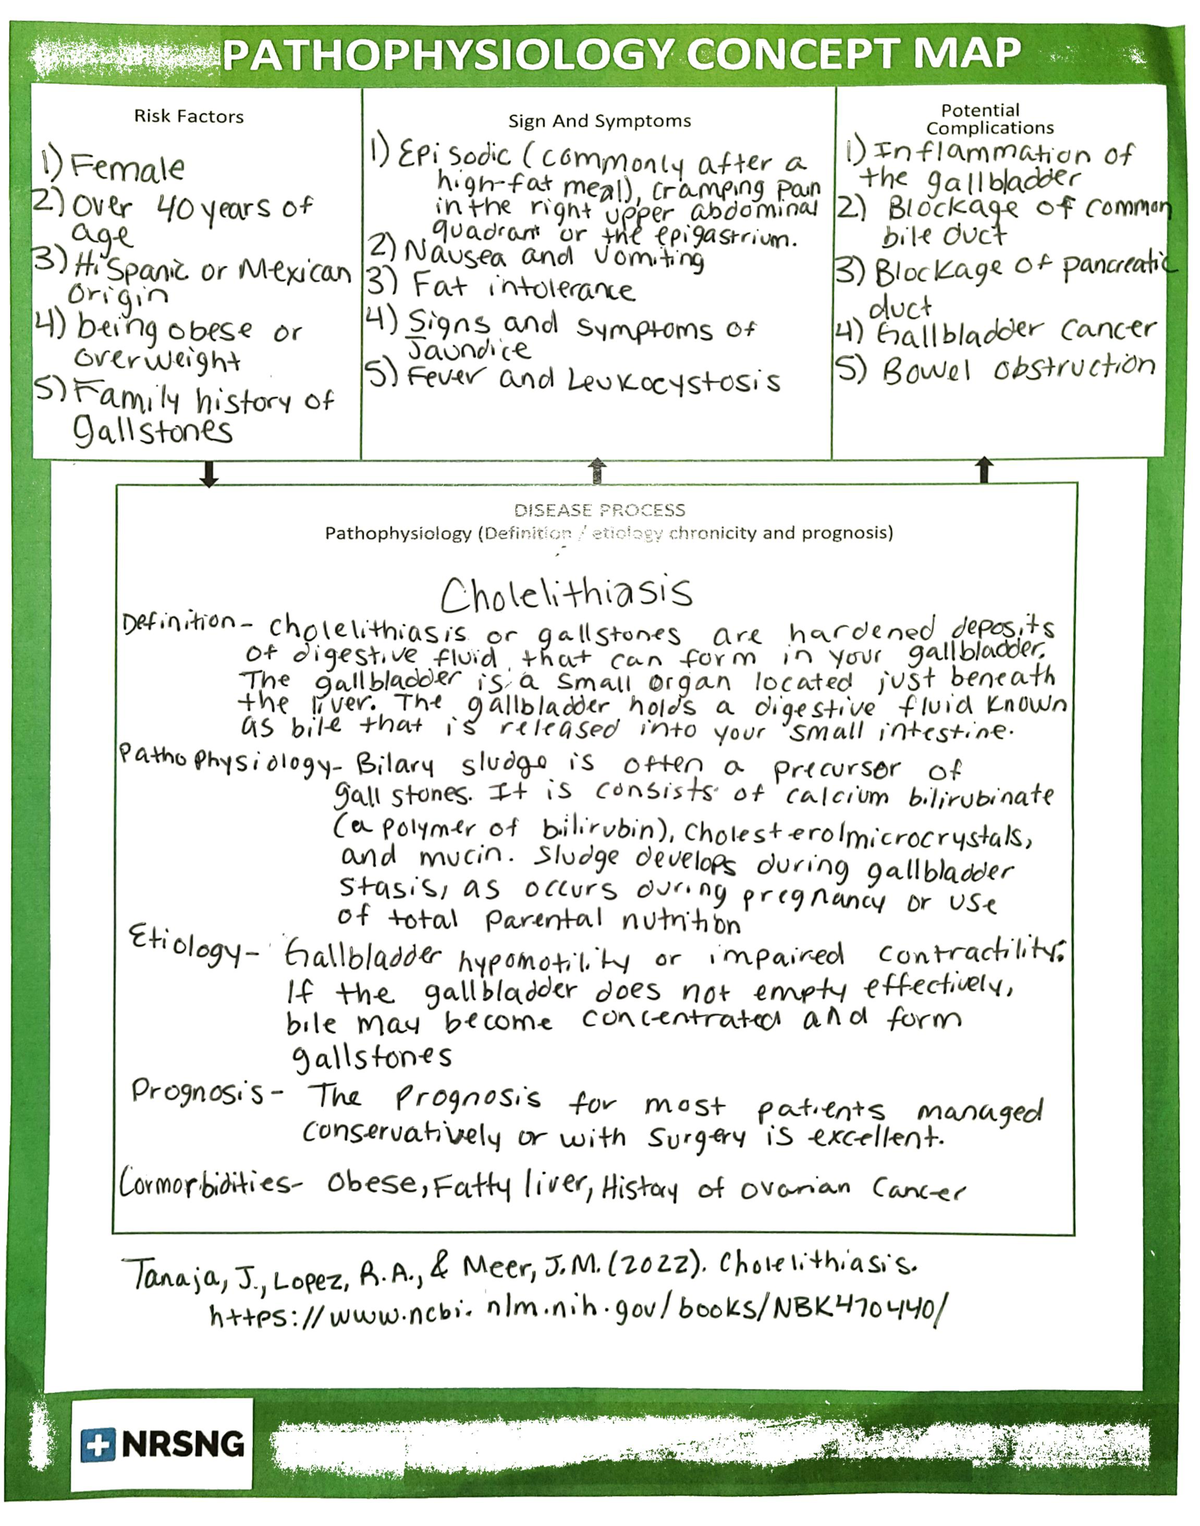 PATHOPHYSIOLOGY CONCEPT MAP
Risk Factors
1) Female
2) Over 40 years of
age
3) Hispanic or Mexican
Origin
4) being obese or
overweight
5) Family history of
gallstones
Sign And Symptoms
1) Episodic (commonly after a
high-fat meal), cramping pain
in the right upper abdominal
quadrant or the epigastrium.
2) Nausea and Vomiting
3) Fat intolerance
4) Signs and symptoms of
Jaundice
5) Fever and Leukocystosis
Potential
Complications
1) Inflammation of
the gallbladder
2) Blockage of common
bile duct
3) Blockage of pancreatic
duct
4) Gallbladder cancer
5) Bowel obstruction
DISEASE PROCESS
Pathophysiology (Definition / etiology chronicity and prognosis)
Cholelithiasis
Definition- cholelithiasis or gallstones are hardened deposits
of digestive fluid that can form in your gallbladder.
The gallbladder is a small organ located just beneath
the liver. The gallbladder holds a digestive fluid known
as bile that is released into your small intestine.
Pathophysiology- Bilary sludge is often a precursor of
gall stones. It is consists of calcium bilirubinate
(a polymer of bilirubin), cholesterol microcrystals,
and mucin. Sludge develops during gallbladder
stasis, as occurs during pregnancy or use
of total parental nutrition
Etiology- Gallbladder hypomotility or impaired contractility:
If the gallbladder does not empty effectively,
bile may become concentrated and form
gallstones
Prognosis- The Prognosis for most patients managed
conservatively or with surgery is excellent.
Cormorbidities- Obese, Fatty liver, History of ovarian Cancer
Tanaja, J., Lopez, R.A., & Meer, J.M. (2022). Cholelithiasis.
https://www.ncbi.nlm.nih.gov/books/NBK470440/
NRSNG